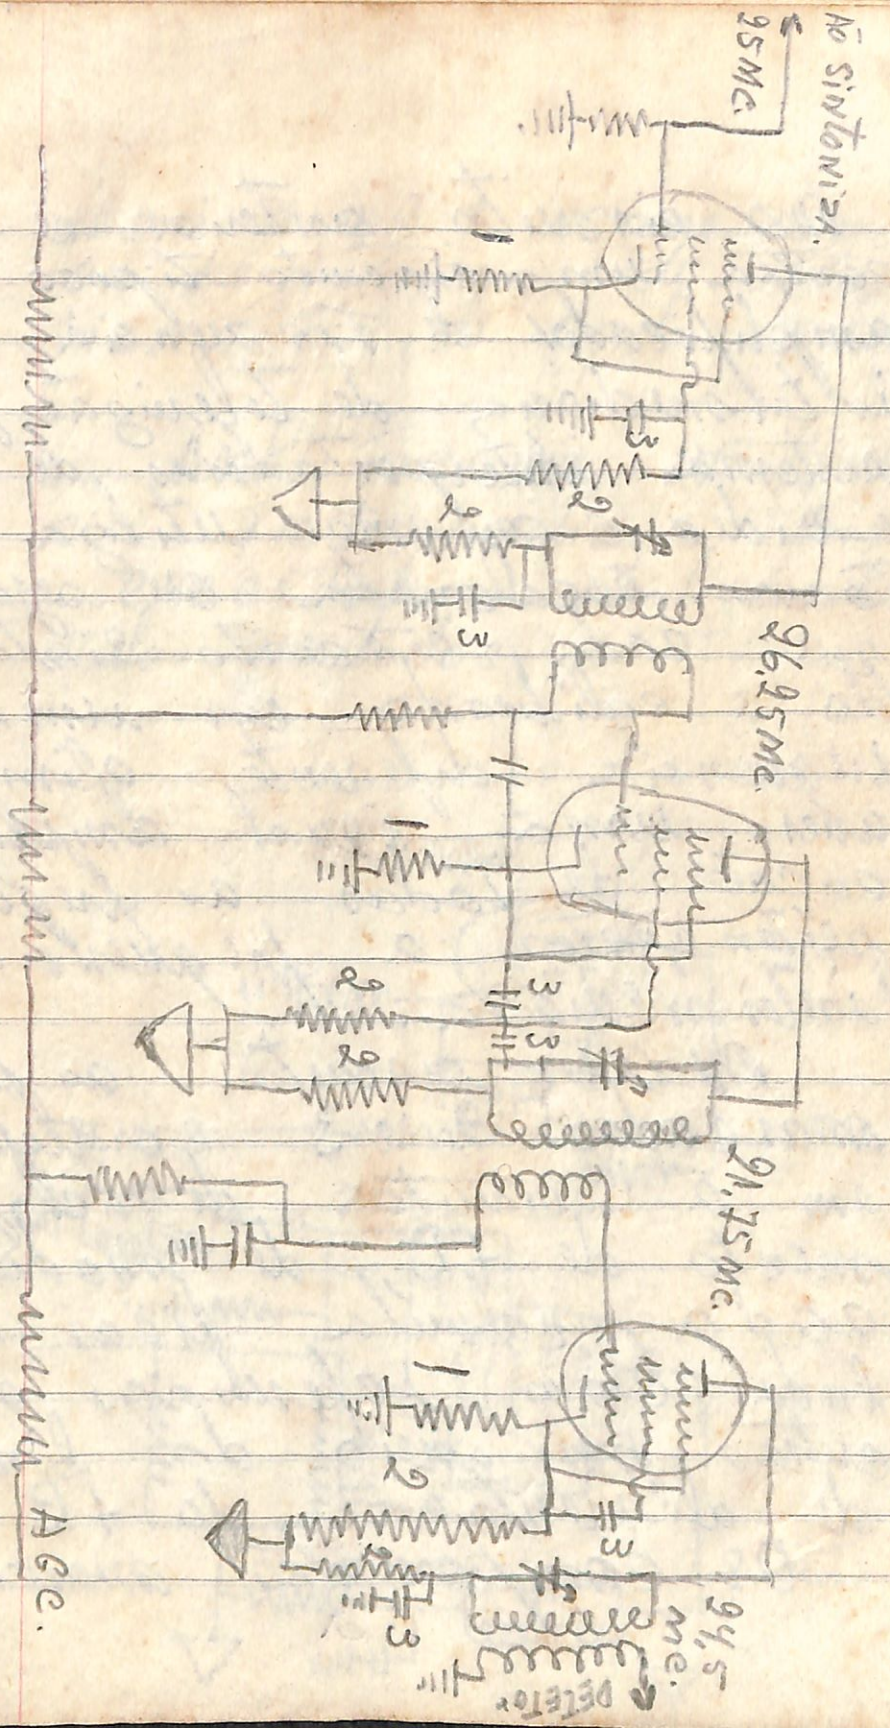 ÃO SiNTONiZA.
25 Mc.
1
3
2
2
3
26,25 Mc.
1
3
2
3
2
21,75 Mc.
1
2
3
2
3
24,5
Mc.
DETETOR
AGC.